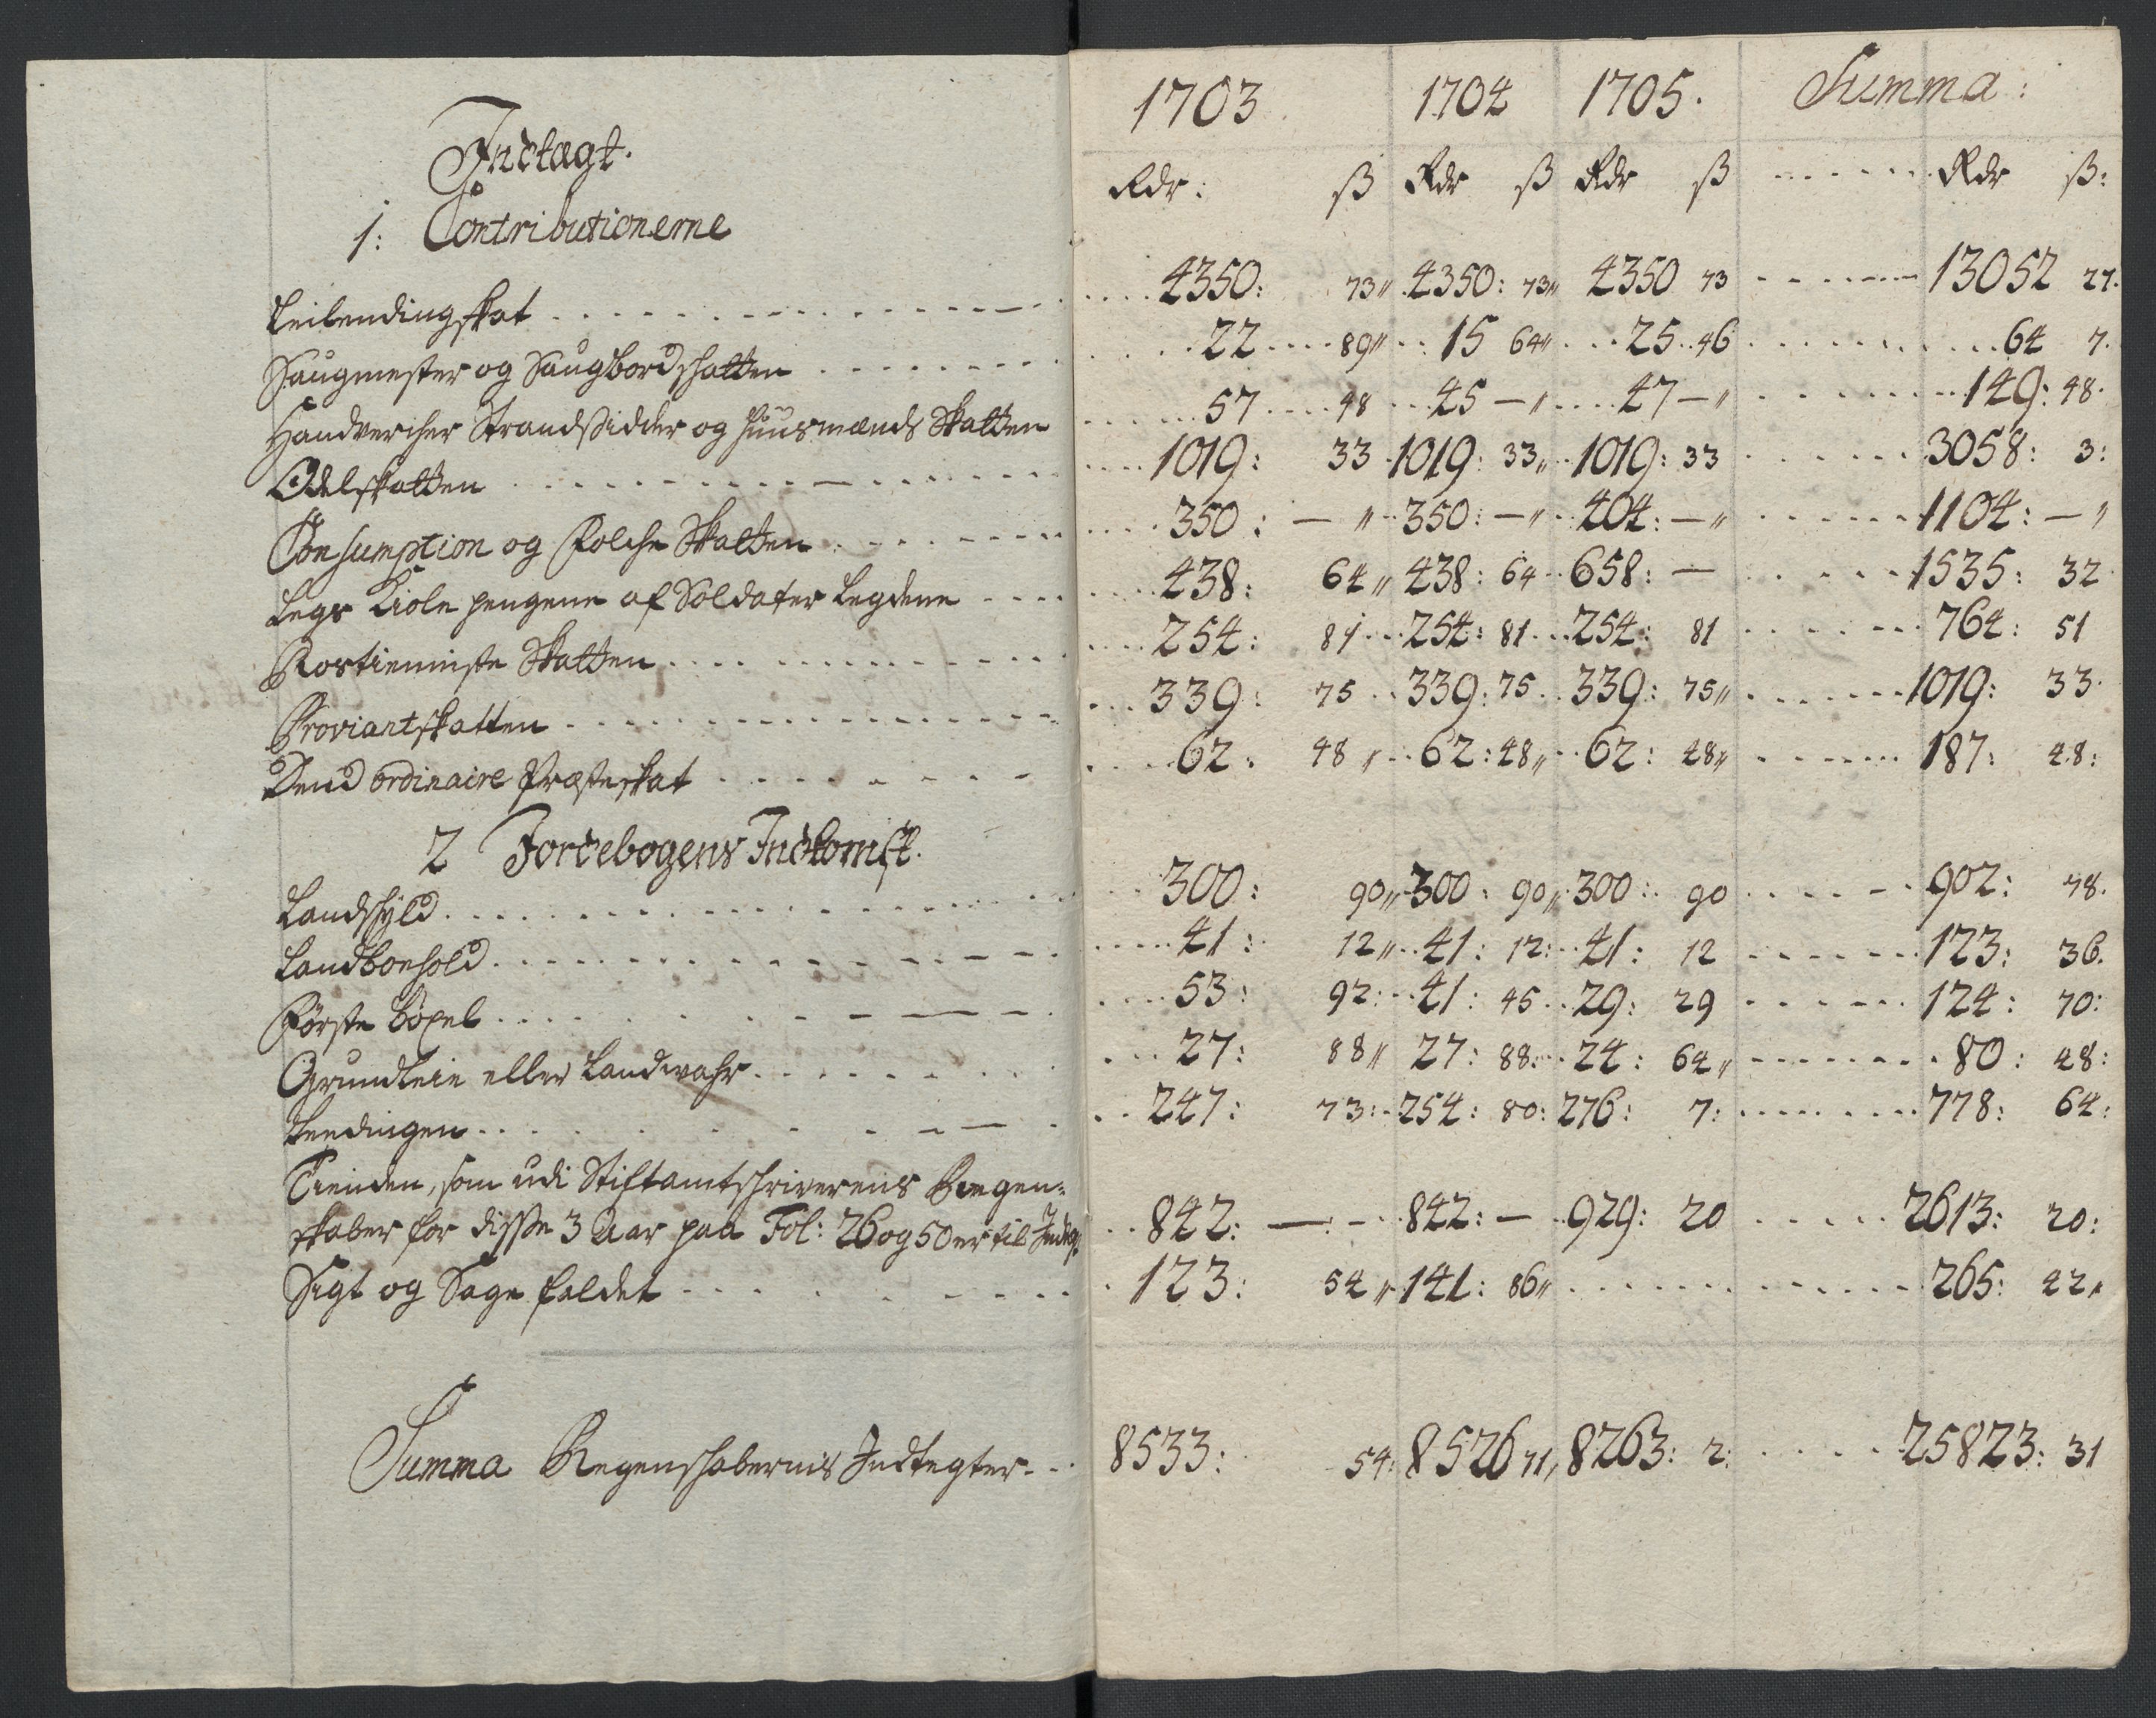 1703 1704 1705. Summa:
Indtægt.
Rdr: ß Rdr ß Rdr ß Rdr ß:
1: Contributionerne
Leilendingskat 4350: 73 4350: 73 4350 73 13052 27.
Saugmester og Saugbordschatten 22 89 15 64 25 46 64 7.
Handvercher Strandsidder og Huusmænds Skatten 57 48 45 - 47 - 149: 48.
Odelskatten 1019: 33 1019: 33 1019: 33 3058: 3:
Consumption og Folche Skatten 350: - 350: - 404: - 1104: -
Legs Kiole pengene af Soldater Legdene 438: 64 438: 64 658: - 1535: 32
Rostienniste Skatten 254: 81 254: 81 254: 81 764: 51
Proviantskatten 339: 75 339: 75 339: 75 1019: 33.
Dend ordinaire Præsteskat 62. 48 62: 48 62: 48 187: 48:
2 Jordebogens Indkomst.
Landschyld 300: 90 300: 90 300: 90 902: 78.
Landbonhold 41: 12 41: 12: 41: 12 123: 36.
Förste Böxel 53: 92: 41: 45 29: 29 124: 70:
Grundleie eller Landwahr 27: 88 27: 88: 24: 64 80: 48:
Leedingen 247: 73: 254: 80: 276: 7: 778: 64:
Tienden, som udi Stiftamtschriverens Regen=
skaber for disse 3 Aar paa Fol: 26 og 50 er til Indtegt 842: - 842: - 929: 20 2613: 20:
Sigt og Sage faldet 123: 54 141: 86 265: 42
Summa Regenschabernis Indtegter 8533: 54: 8526 71, 8263: 2: 25823: 31